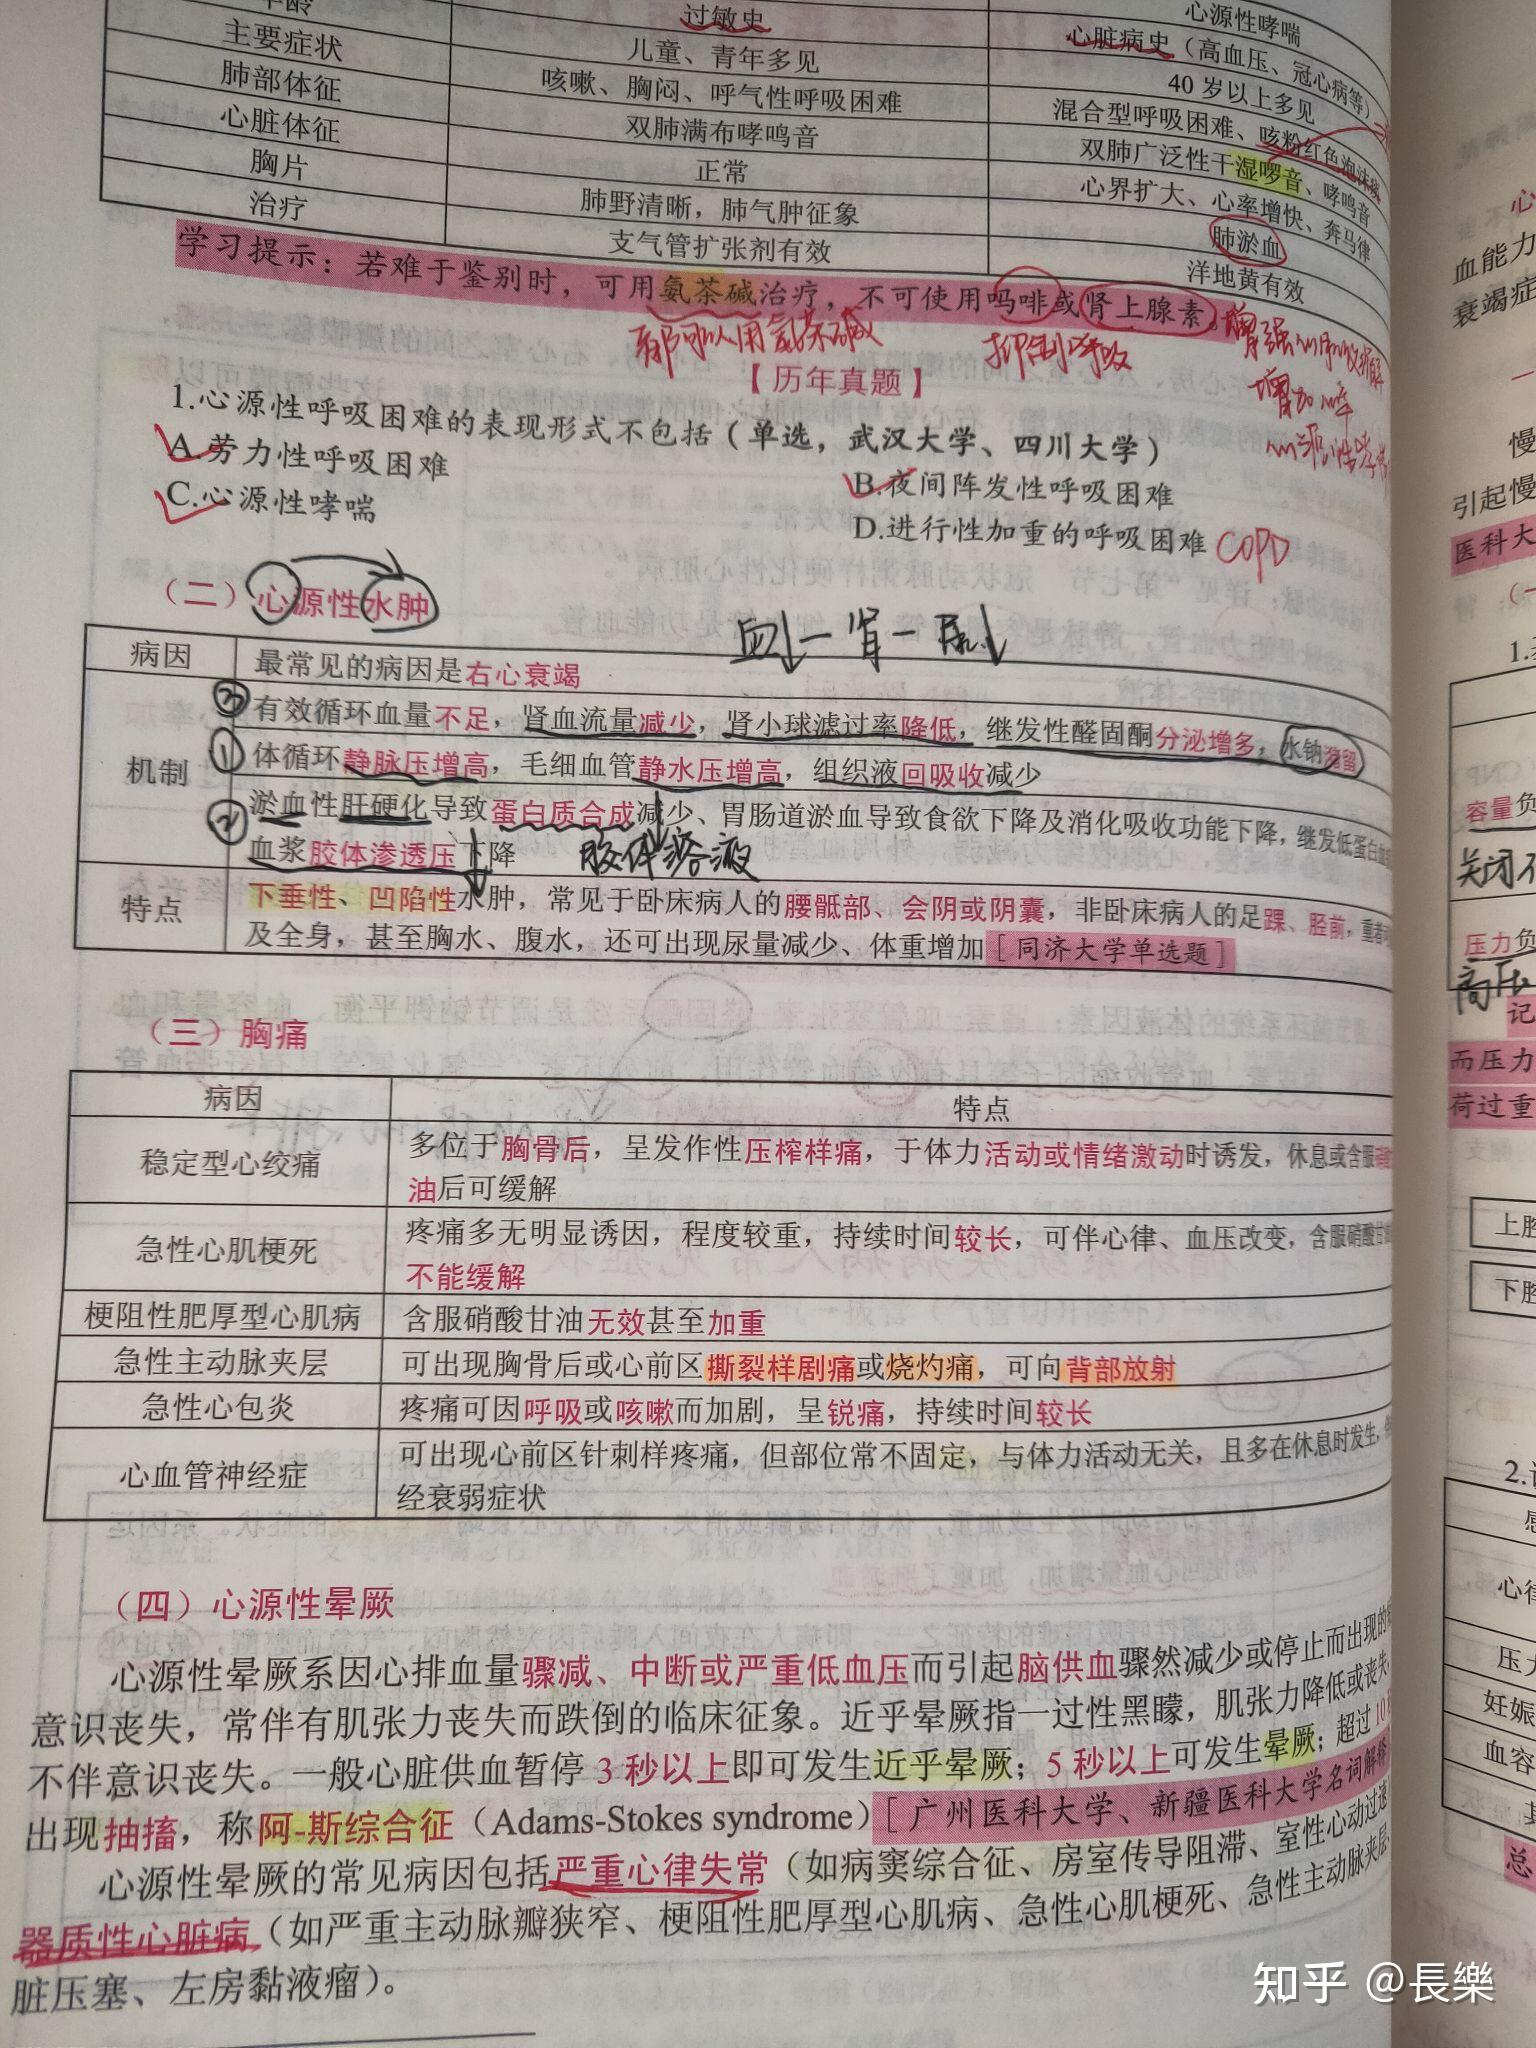 过敏史 心源性哮喘
主要症状 儿童、青年多见 心脏病史（高血压、冠心病等）
肺部体征 咳嗽、胸闷、呼气性呼吸困难 40 岁以上多见
心脏体征 双肺满布哮鸣音 混合型呼吸困难、咳粉红色泡沫痰
胸片 正常 双肺广泛性干湿啰音、哮鸣音
治疗 肺野清晰，肺气肿征象 心界扩大、心率增快、奔马律
支气管扩张剂有效 肺淤血
洋地黄有效
学习提示：若难于鉴别时，可用氨茶碱治疗，不可使用吗啡或肾上腺素。
都可以用氨茶碱 抑制呼吸
【历年真题】
1.心源性呼吸困难的表现形式不包括（单选，武汉大学、四川大学）
A.劳力性呼吸困难 B.夜间阵发性呼吸困难
C.心源性哮喘 D.进行性加重的呼吸困难 COPD
（二）心源性水肿
血↓—肾—尿↓
病因 最常见的病因是右心衰竭
机制 ③ 有效循环血量不足，肾血流量减少，肾小球滤过率降低，继发性醛固酮分泌增多，水钠潴留
① 体循环静脉压增高，毛细血管静水压增高，组织液回吸收减少
② 淤血性肝硬化导致蛋白质合成减少、胃肠道淤血导致食欲下降及消化吸收功能下降，继发低蛋白血
血浆胶体渗透压下降 胶体溶液
特点 下垂性、凹陷性水肿，常见于卧床病人的腰骶部、会阴或阴囊，非卧床病人的足踝、胫前，重者可
及全身，甚至胸水、腹水，还可出现尿量减少、体重增加［同济大学单选题］
（三）胸痛
病因 特点
稳定型心绞痛 多位于胸骨后，呈发作性压榨样痛，于体力活动或情绪激动时诱发，休息或含服硝酸
油后可缓解
急性心肌梗死 疼痛多无明显诱因，程度较重，持续时间较长，可伴心律、血压改变，含服硝酸甘
不能缓解
梗阻性肥厚型心肌病 含服硝酸甘油无效甚至加重
急性主动脉夹层 可出现胸骨后或心前区撕裂样剧痛或烧灼痛，可向背部放射
急性心包炎 疼痛可因呼吸或咳嗽而加剧，呈锐痛，持续时间较长
心血管神经症 可出现心前区针刺样疼痛，但部位常不固定，与体力活动无关，且多在休息时发生，
经衰弱症状
（四）心源性晕厥
心源性晕厥系因心排血量骤减、中断或严重低血压而引起脑供血骤然减少或停止而出现的
意识丧失，常伴有肌张力丧失而跌倒的临床征象。近乎晕厥指一过性黑矇，肌张力降低或丧失，
不伴意识丧失。一般心脏供血暂停 3 秒以上即可发生近乎晕厥；5 秒以上可发生晕厥；超过 10
出现抽搐，称阿-斯综合征（Adams-Stokes syndrome）［广州医科大学、新疆医科大学名词解释
心源性晕厥的常见病因包括严重心律失常（如病窦综合征、房室传导阻滞、室性心动过速
器质性心脏病（如严重主动脉瓣狭窄、梗阻性肥厚型心肌病、急性心肌梗死、急性主动脉夹层
脏压塞、左房黏液瘤）。
血能力
衰竭症
慢
引起慢
医科大
容量负
关闭不
压力负
高压
记
而压力
荷过重
上腔
下腔
心律
压力
妊娠
血容
总
知乎 @長樂